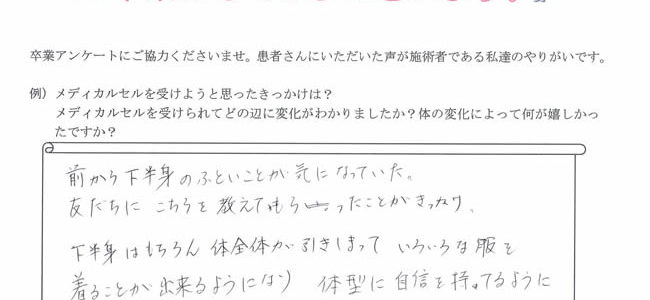 卒業アンケートにご協力くださいませ。患者さんにいただいた声が施術者である私達のやりがいです。
例）メディカルセルを受けようと思ったきっかけは？
メディカルセルを受けられてどの辺に変化がわかりましたか？体の変化によって何が嬉しかっ
たですか？
前から下半身のふといことが気になっていた。
友だちに こちらを教えてもらったことがきっかけ。
下半身はもちろん 体全体が引きしまって いろいろな服を
着ることが出来るようになり 体型に自信を持ってるように